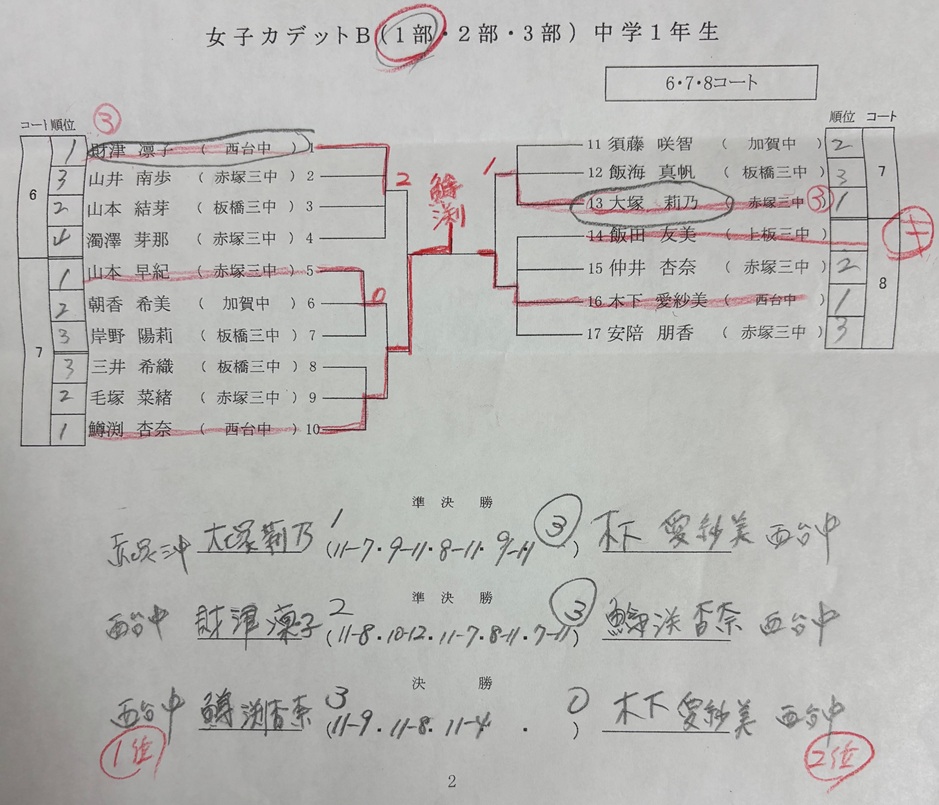 女子カデットB(1部・2部・3部) 中学1年生
6・7・8コート
コート 順位 ③ 順位 コート
6
1 財津 凛子 ( 西台中 ) 1
3 山井 南歩 ( 赤塚三中 ) 2
2 山本 結芽 ( 板橋三中 ) 3
4 濁澤 芽那 ( 赤塚三中 ) 4
7
1 山本 早紀 ( 赤塚三中 ) 5
2 朝香 希美 ( 加賀中 ) 6
3 岸野 陽莉 ( 板橋三中 ) 7
3 三井 希織 ( 板橋三中 ) 8
2 毛塚 菜緒 ( 赤塚三中 ) 9
1 鱒渕 杏奈 ( 西台中 ) 10
2 鱒渕 1
0
11 須藤 咲智 ( 加賀中 ) 2
12 飯海 真帆 ( 板橋三中 ) 3
13 大塚 莉乃 ( 赤塚三中 ③ 1
7
14 飯田 友美 ( 上板三中 )
15 仲井 杏奈 ( 赤塚三中 ) 2
16 木下 愛紗美 ( 西台中 ) 1
17 安陪 朋香 ( 赤塚三中 ) 3
8
準決勝
赤塚三中 大塚莉乃 1 (11-7・9-11・8-11・9-11 ) ③ 木下 愛紗美 西台中
準決勝
西台中 財津凛子 2 (11-8・10-12・11-7・8-11・7-11) ③ 鱒渕杏奈 西台中
決勝
西台中 鱒渕杏奈 3 (11-9・11-8・11-4 ・ ) 0 木下 愛紗美 西台中
1位 2位
2